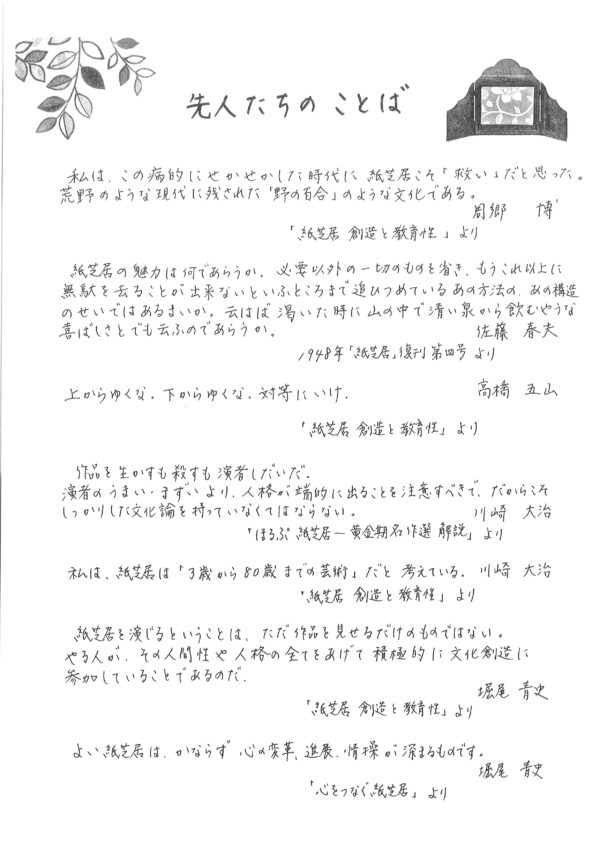 先人たちの ことば
私は、この病的にせかせかした時代に 紙芝居こそ「救い」だと思った。
荒野のような現代に残された「野の百合」のような文化である。
周郷 博
「紙芝居 創造と教育性」より
紙芝居の魅力は何であらうか。必要以外の一切のものを省き、もうこれ以上に
無駄を去ることが出来ないといふところまで追ひつめているあの方法の、あの構造
のせいではあるまいか。云はば 渇いた時に山の中で清い泉から飲むやうな
喜ばしさとでも云ふのであらうか。 佐藤 春夫
1948年「紙芝居」復刊 第四号 より
上からゆくな、下からゆくな、対等にいけ、 高橋 五山
「紙芝居 創造と教育性」より
作品を生かすも殺すも演者しだいだ。
演者のうまい・まずいより、人格が端的に出ることを注意すべきで、だからこそ
しっかりした文化論を持っていなくてはならない。 川崎 大治
「ほるぷ紙芝居〜黄金期名作選 解説」より
私は、紙芝居は「3歳から80歳までの芸術」だと 考えている。川崎 大治
「紙芝居 創造と教育性」より
紙芝居を演じるということは、ただ作品を見せるだけのものではない。
やる人が、その人間性や人格の全てをあげて 積極的に文化創造に
参加していることであるのだ。
堀尾 青史
「紙芝居 創造と教育性」より
よい紙芝居は、かならず 心の変革、進展、情操が深まるものです。
堀尾 青史
「心をつなぐ紙芝居」より